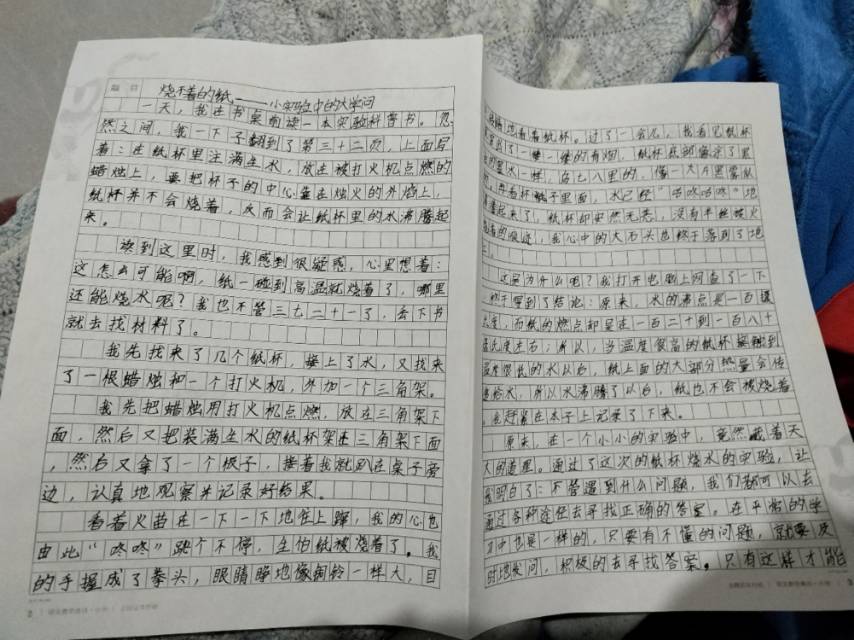 题目
烧不着的纸——小实验中的大学问
一天，我在书桌前读一本实验科普书。忽
然之间，我一下子翻到了第三十二页，上面写
着：在纸杯里注满生水，放在被打火机点燃的
蜡烛上，要把杯子的中心靠在烛火的外焰上，
纸杯并不会烧着，反而会让纸杯里的水沸腾起
来。
读到这里时，我感到很疑惑，心里想着：
这怎么可能啊，纸一碰到高温就烧着了，哪里
还能烧水呢？我也不管三七二十一了，丢下书
就去找材料了。
我先找来了几个纸杯，接上了水，又找来
了一根蜡烛和一个打火机，外加一个三角架。
我先把蜡烛用打火机点燃，放在三角架下
面，然后又把装满生水的纸杯架在三角架下面
，然后又拿了一个板子，接着我就趴在桌子旁
边，认真地观察并记录好结果。
看着火苗在一下一下地往上蹿，我的心也
由此“咚咚”跳个不停，生怕纸被烧着了。我
的手握成了拳头，眼睛睁地像铜铃一样大，目
地看着纸杯。过了一会儿，我看见纸杯
了一缕一缕的青烟，纸杯底部
墨水一样，乌七八里的，像一大片黑雾似
的。再看杯子里面，水已经“咕咚咕咚”地
起来了，纸杯却安然无恙，没有半丝被火
的痕迹，我心中的大石头也终于落到了地
上。
这是为什么呢？我打开电脑上网查了一下
，终于得到了结论：原来，水的沸点是一百摄
氏度，而纸的燃点却是在一百二十到一百八十
摄氏度左右；所以，当温度很高的纸杯接触到
温度很低的水以后，纸上面的大部分热量会传
递给水，所以水沸腾了以后，纸也不会被烧着
。我赶紧在本子上记录了下来。
原来，在一个小小的实验中，竟然藏着天
大的道理。通过了这次的纸杯烧水的实验，让
我明白了：不管遇到什么问题，我们都可以去
通过各种途径去寻找正确的答案。在平常的学
习中也是一样的，只要有不懂的问题，就要及
时地发问，积极的去寻找答案。只有这样才能